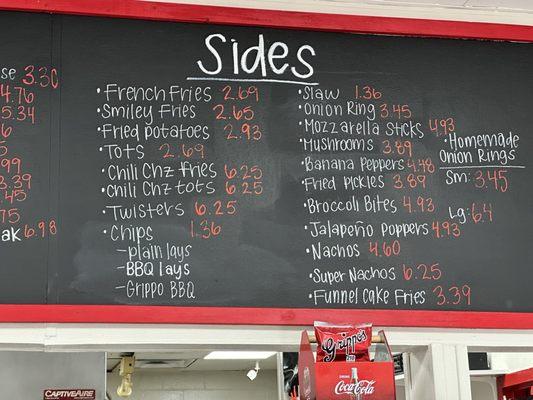 Sides
se 3.30
4.76
5.34
3.39
.45
.75
ak 6.98
• French Fries 2.69
• Smiley Fries 2.65
• Fried Potatoes 2.93
• Tots 2.69
• Chili Chz fries 6.25
• Chili Chz tots 6.25
• Twisters 6.25
• Chips 1.36
- plain lays
- BBQ lays
- Grippo BBQ
• Slaw 1.36
• Onion Ring 3.45
• Mozzarella Sticks 4.93
• Mushrooms 3.89
• Banana Peppers 4.48
• Fried Pickles 3.89
• Broccoli Bites 4.93
• Jalapeño Poppers 4.93
• Nachos 4.60
• Super Nachos 6.25
• Funnel Cake Fries 3.39
• Homemade
Onion Rings
Sm: 3.45
Lg: 6.4
Grippo's
Coca-Cola
CAPTIVEAIRE